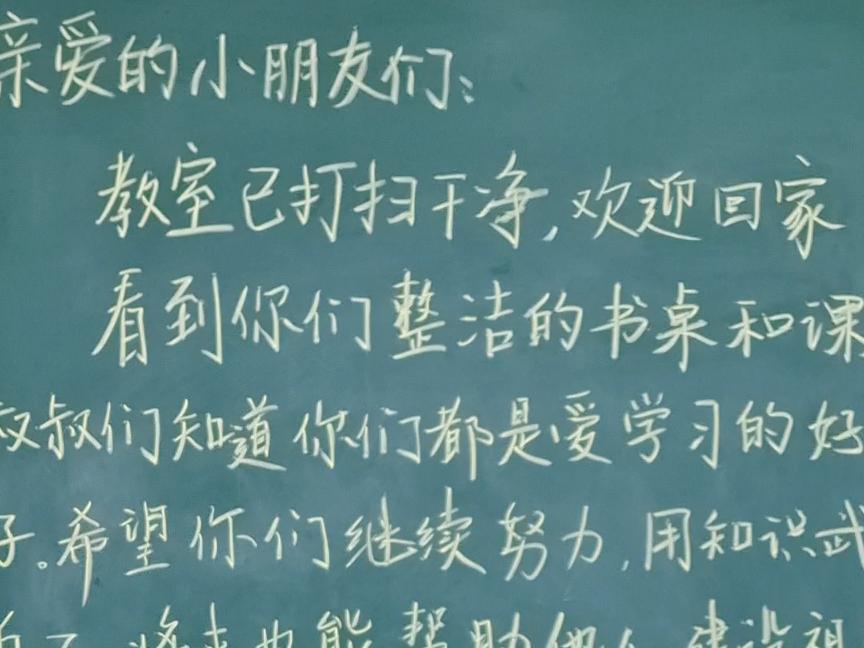 亲爱的小朋友们：
教室已打扫干净,欢迎回家
看到你们整洁的书桌和课
叔叔们知道你们都是爱学习的好
子。希望你们继续努力,用知识武
将来也能帮助他人 建设祖